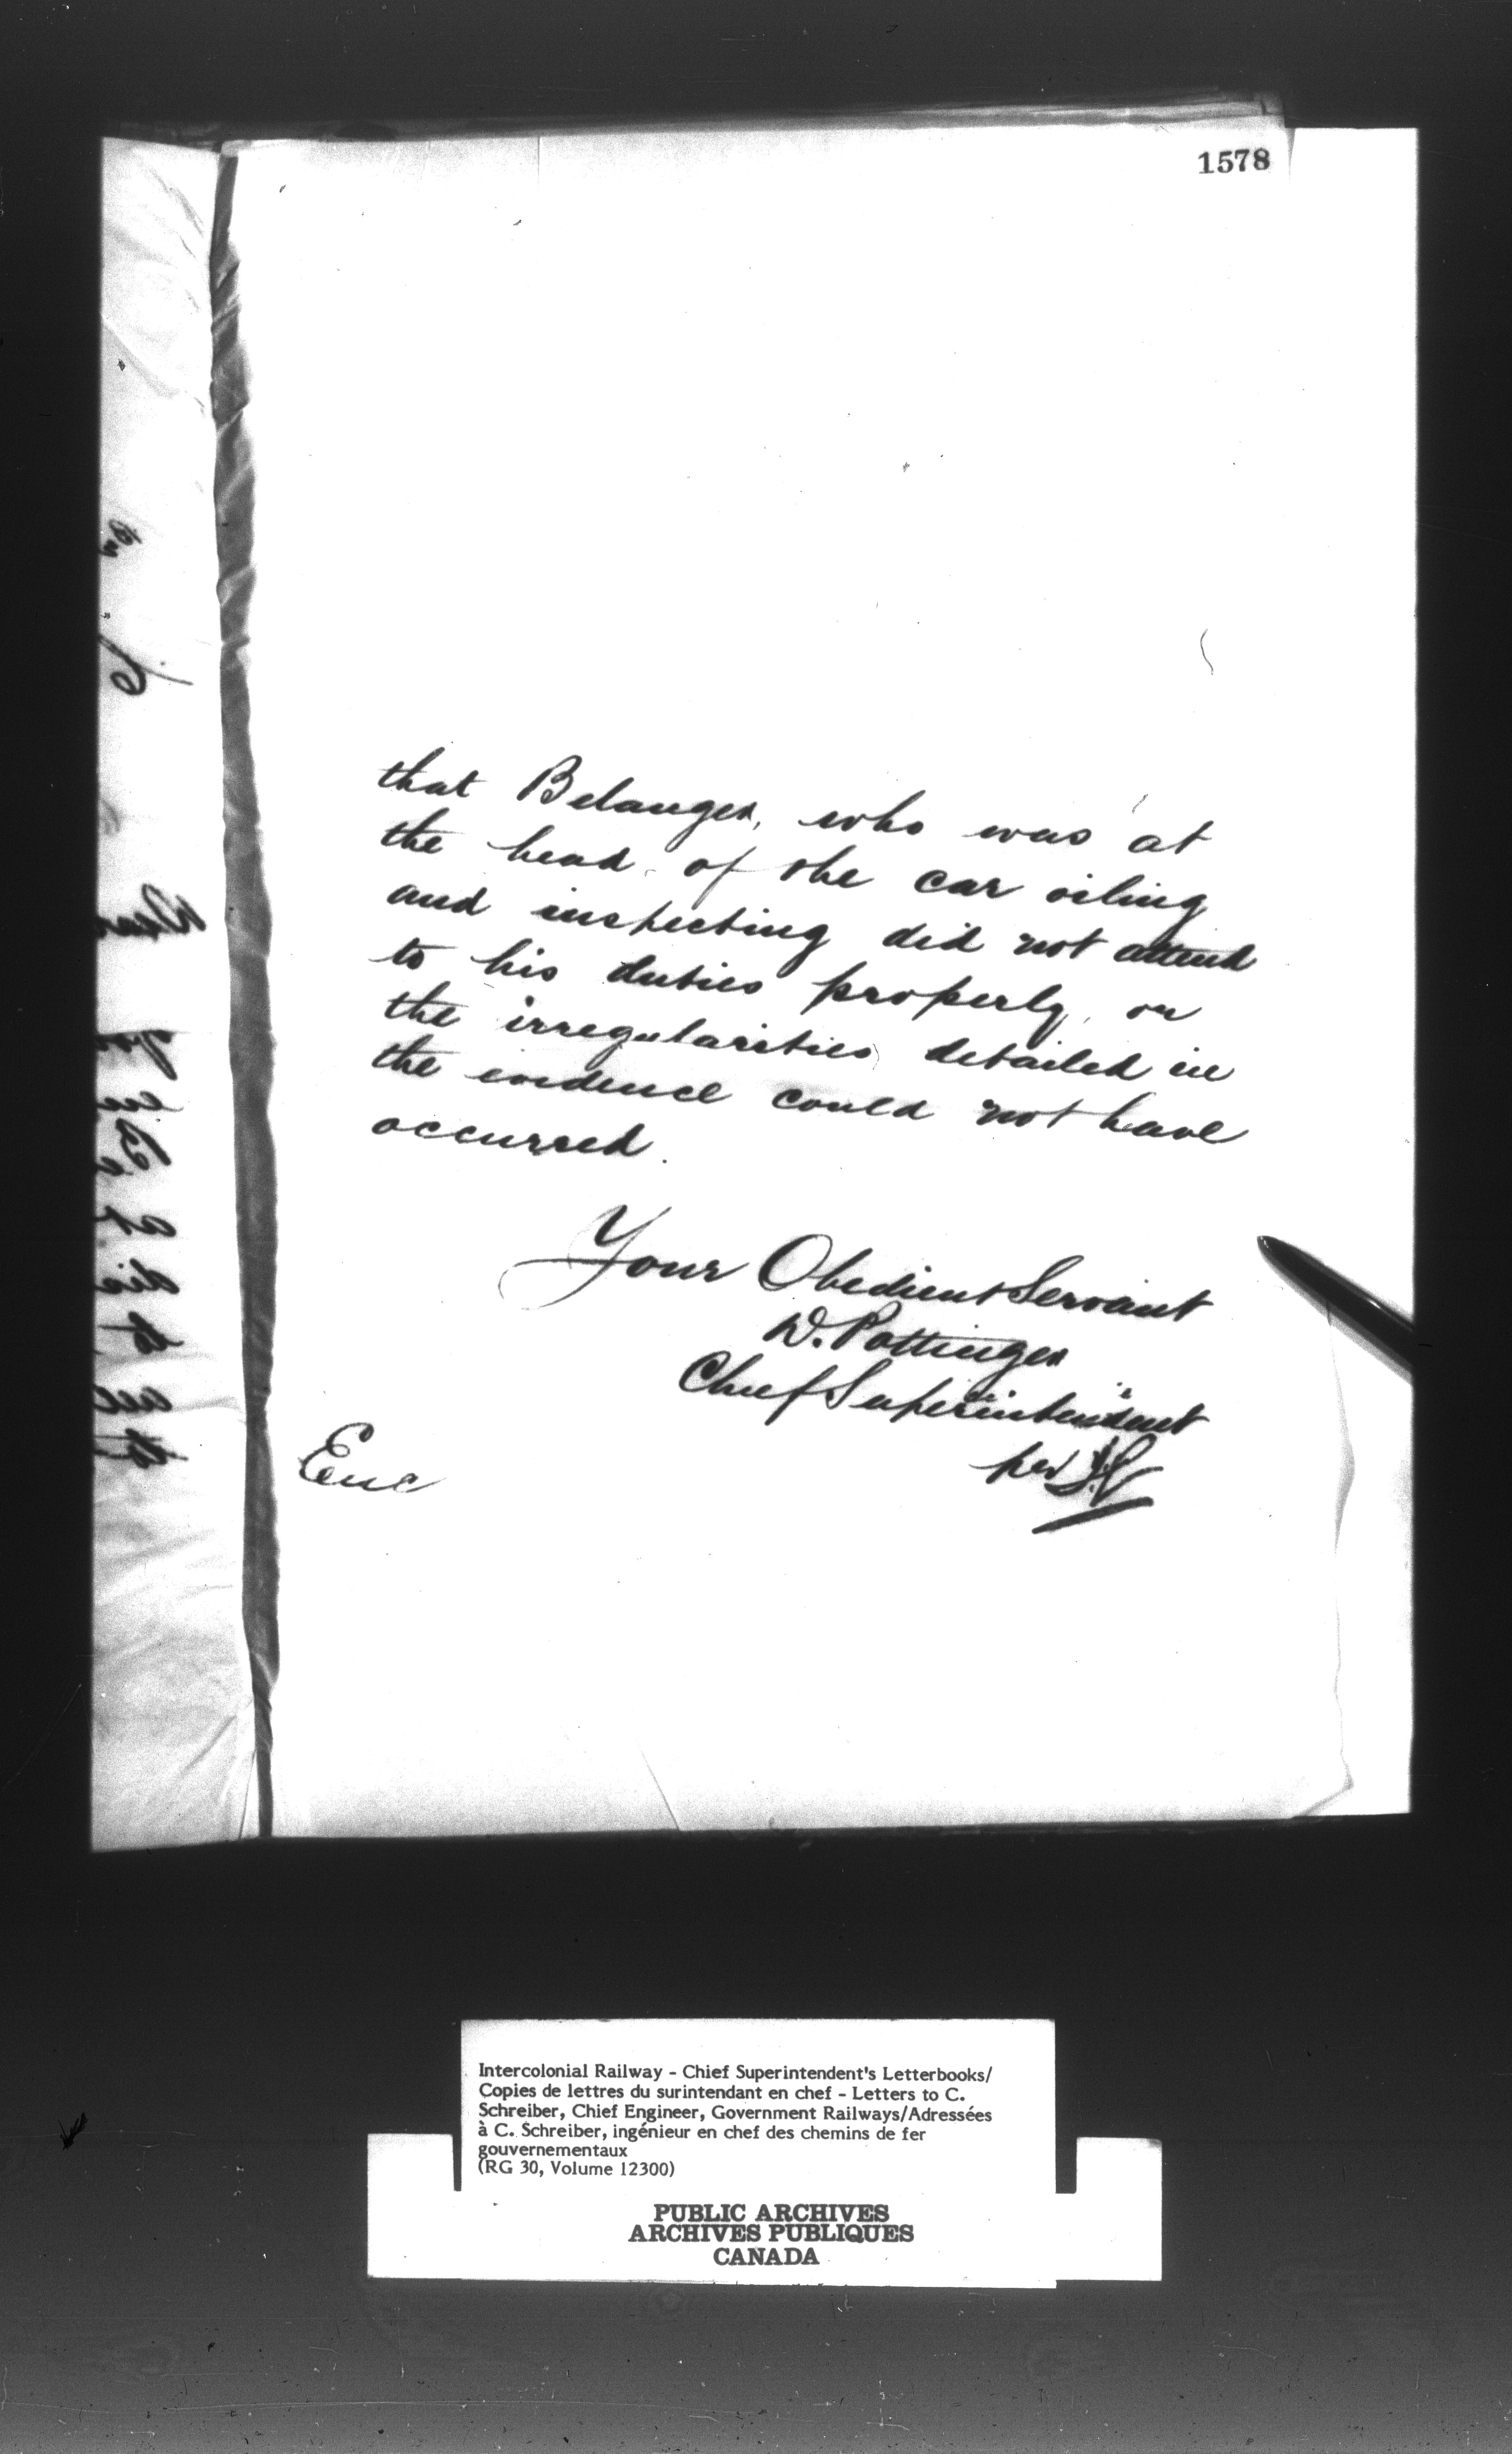 1578
that Belanger, who was at
the head of the car oiling
and inspecting did not attend
to his duties properly, or
the irregularities detailed in
the evidence could not have
occurred.
Your Obedient Servant
D. Pottinger
Chief Superintendent
per
Enc
Intercolonial Railway - Chief Superintendent's Letterbooks/
Copies de lettres du surintendant en chef - Letters to C.
Schreiber, Chief Engineer, Government Railways/Adressées
à C. Schreiber, ingénieur en chef des chemins de fer
gouvernementaux
(RG 30, Volume 12300)
PUBLIC ARCHIVES
ARCHIVES PUBLIQUES
CANADA